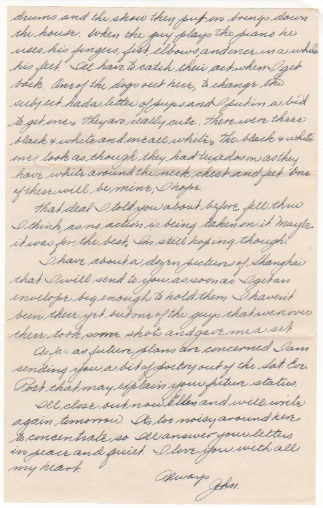 drums and the show they put on brings down
the house. When the guy plays the piano he
uses his fingers, fist, elbows and once in a while
his feet. I'll have to catch their act when I get
back. One of the dogs out here, to change the
subject had a letter of pups and I put in a bid
to get one. They are really cute. There were three
black & white and one all white. The black & white
ones look as though they had tuxedos on as they
have white around the neck, chest and feet. One
of these will be mine, I hope.
That deal I told you about before fell thru
I think, as no action is being taken on it. Maybe
it was for the best. I'm still hoping though.
I have about a dozen pictures of Shanghai
that I will send to you as soon as I get an
envelope big enough to hold them. I haven't
been there yet but one of the guys that was over
there took some shots and gave me a set.
As far as future plans are concerned I am
sending you a bit of poetry out of the Sat Eve
Post that may explain your future status.
I'll close out now Ellen and will write
again tomorrow. It's too noisy around here
to concentrate so I'll answer your letters
in peace and quiet. I love you with all
my heart.
Always
John